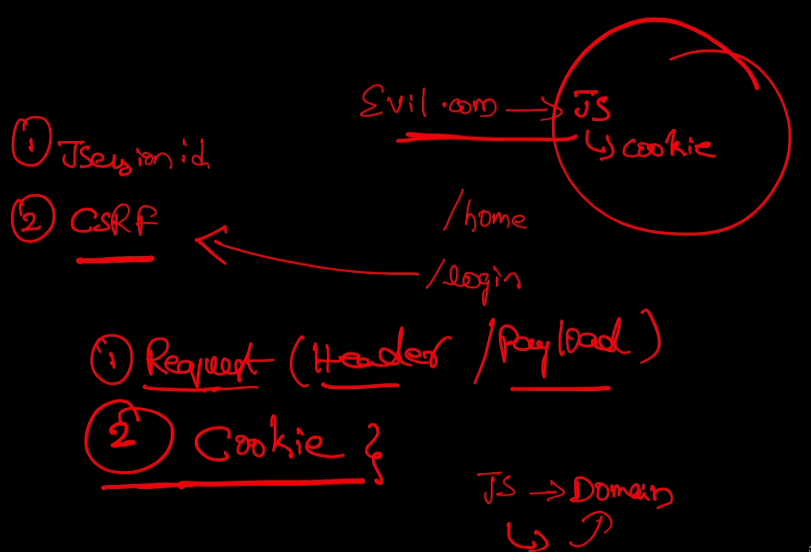 Evil.com → JS
↳ cookie
① JSessionid
② CSRF
/home
/login
① Request (Header / Payload)
② Cookie }
JS → Domain